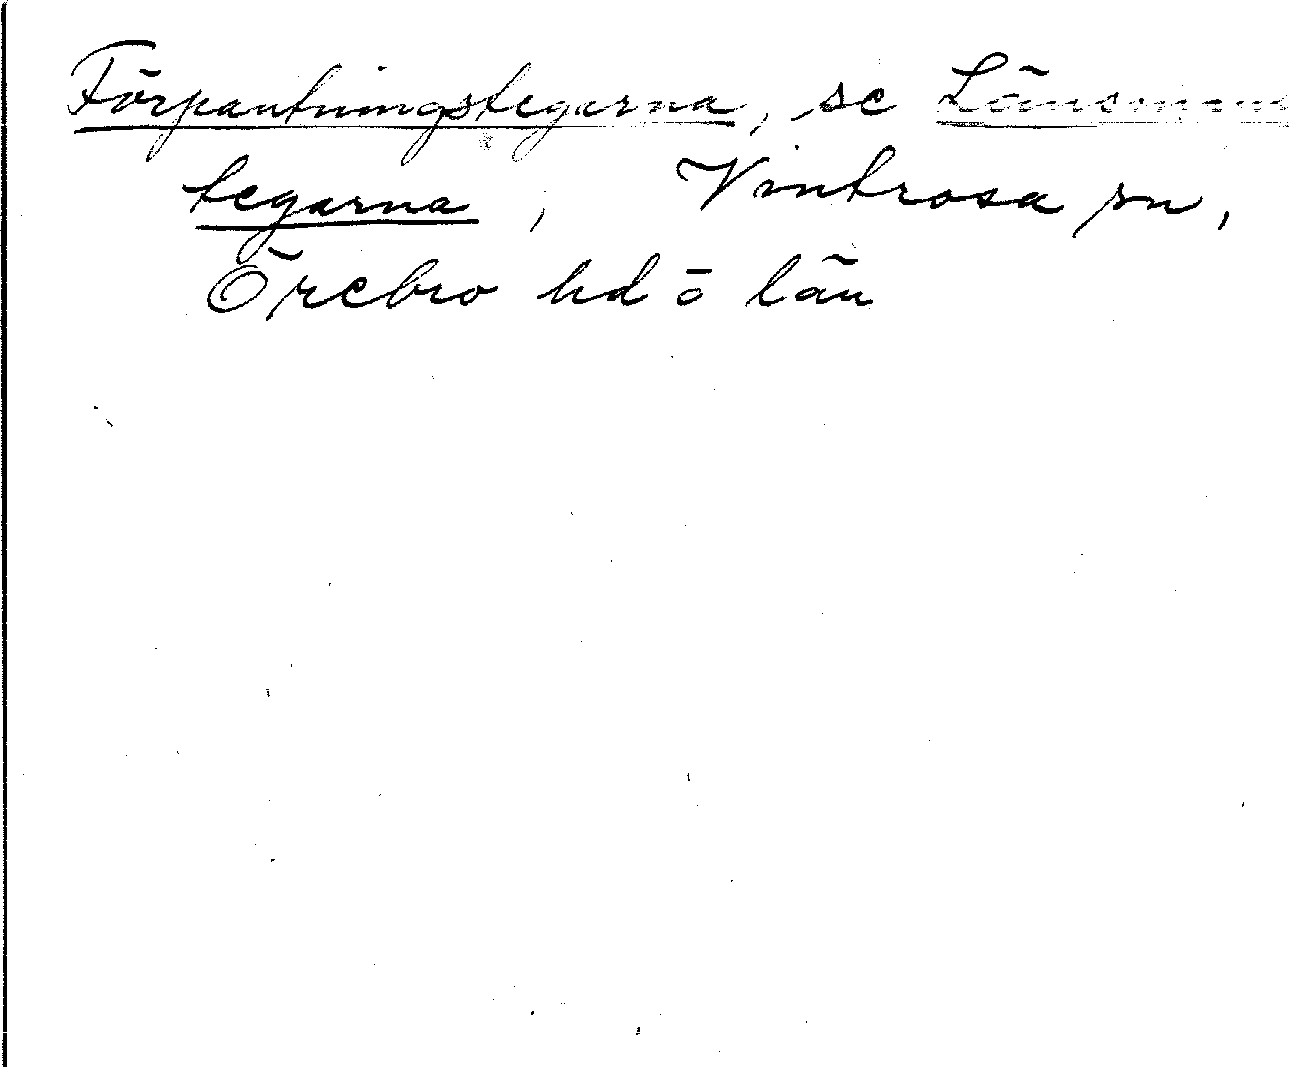 Förpantningstegarna, se Länsmans
tegarna, Vintrosa sn,
Örebro hd o län